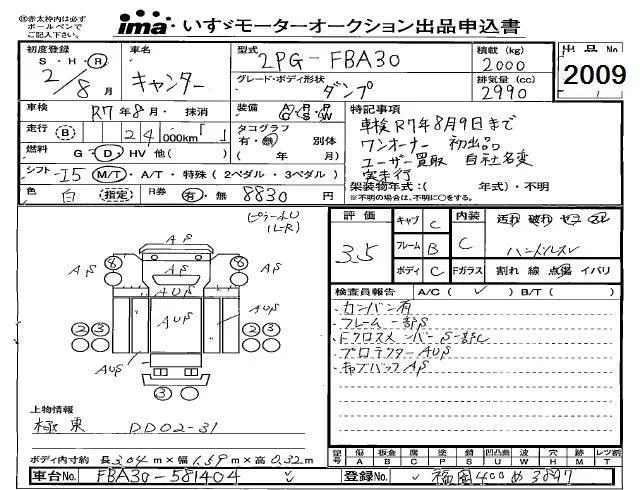 ㊟赤太枠内は必ず
ボールペンで
ご記入下さい。
ima いすゞモーターオークション出品申込書
初度登録 S・H・Ⓡ 2/8月
車名 キャンター
型式 2PG-FBA30
積載(kg) 2000
出品No. 2009
グレード・ボディ形状 ダンプ
排気量(cc) 2990
車検 R7年8月・抹消
装備 AC PS PW
特記事項
走行 (B) 24 000km「 」
タコグラフ 有・無 別体 ( 年 月)
車検R7年8月9日まで
ワンオーナー 初出品
ユーザー買取 自社名変
実走行
燃料 G・D・HV 他( )
シフト I5 M/T・A/T・特殊(2ペダル・3ペダル)
架装物年式:( 年式)・不明
※不明の場合は、不明に○をする。
色 白 (指定) R券 有・無 8830円
ピラーAU
(L-R)
評価 3.5
キャブ C
内装 C
汚れ 破れ ヤニ スレ
ハンドルスレ
フレーム B
ボディ C
Fガラス 割れ 線 点傷 イバリ
検査員報告 A/C(✓) B/T( )
・カンバン有
・フレーム一部S
・FクロスメンバーS一部C
・プロテクターAUS
・キャブバックAS
AS
8 8
AS AS
AUS
AUS
2 3 2 3
AUS
AUS
3
上物情報
極東 DD02-31
ボディ内寸約 長3.04m×幅1.59m×高0.32m
記号 傷A 凹B 板金 腐C 塗P 錆S 凹凸曲U 波W 穴H 色M レツ割T
車台No. FBA30-581404
登録No. 福岡400め3897